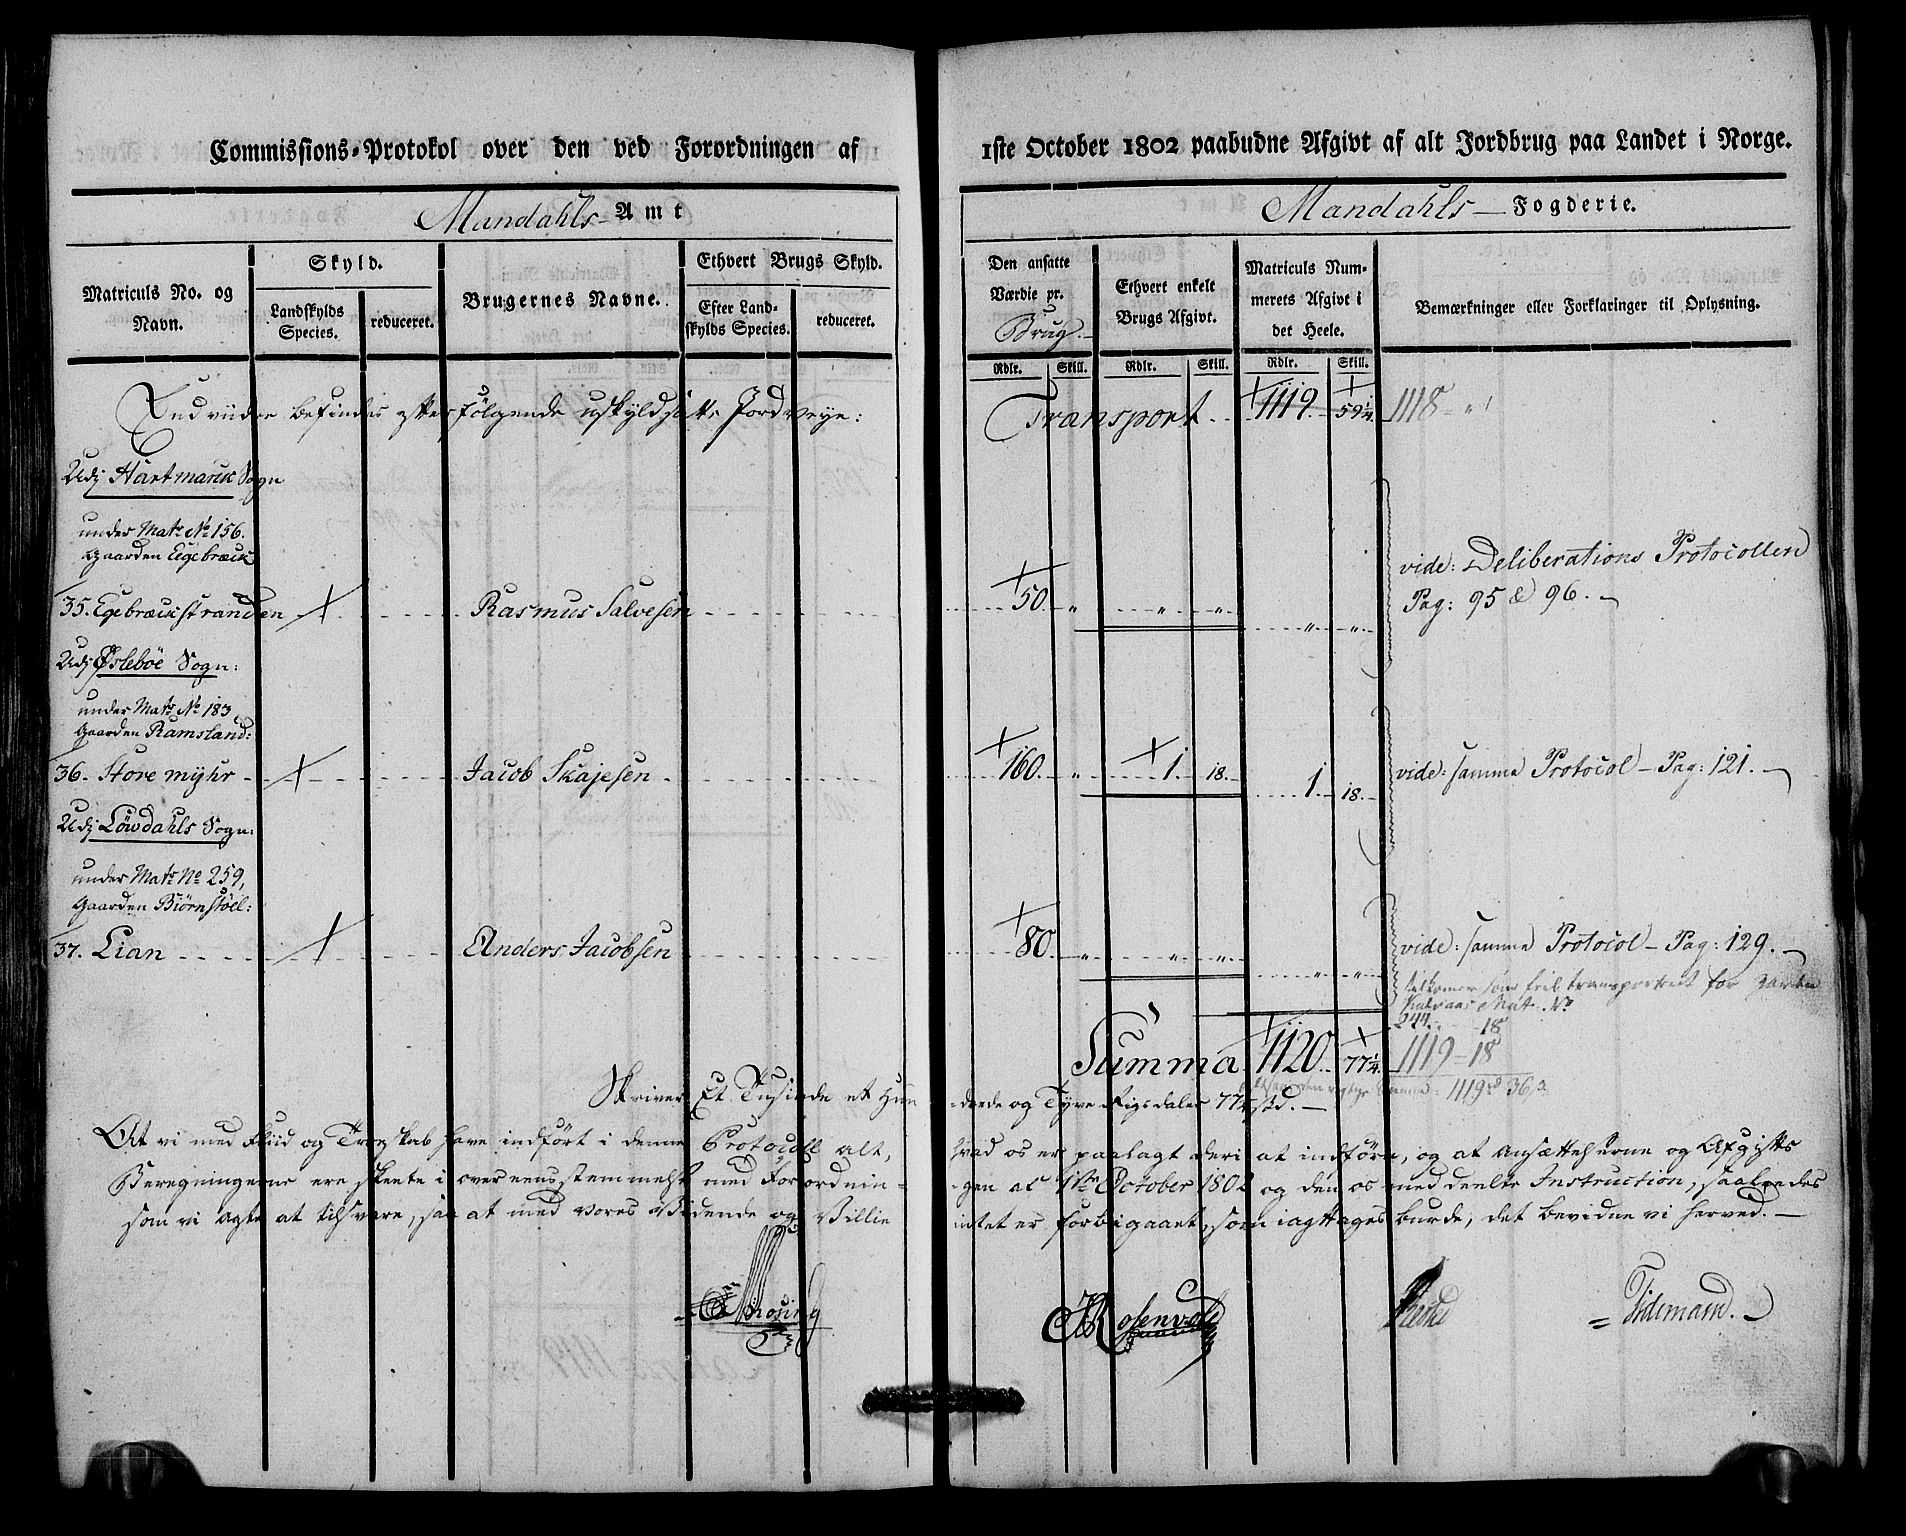 Commissions-Protokol over den ved Forordningen af
Mandahls Amt
Matriculs No. og Navn.
Skyld.
Landskylds Species.
reduceret.
Brugernes Navne.
Ethvert Brugs Skyld.
Efter Landskylds Species.
reduceret.
Endviidere befindes efterfölgende uskyldsatte Jordveye:
Udj Hartmarck Sogn
under Matr No 156.
Gaarden Eegebræck
35. Egebræckstranden Rasmus Salvesen
Udj Øslebøe Sogn:
under Matr No 183,
Gaarden Ramsland:
36. Store mÿhr Jacob Skajesen
Udj Löwdahls Sogn:
under Matr No 259,
Gaarden Biörnstöel:
37. Lian Anders Jacobsen
Skriver Et Tusinde et Hun-
At vi med Fliid og Troeskab have indfört i denne Protocoll alt,
Beregningerne ere skeete i overeensstemmelse med Forordnin-
som vi agte at tilsvare, saa at med vores Vidende og Villie
1ste October 1802 paabudne Afgivt af alt Jordbrug paa Landet i Norge.
Mandahls Fogderie.
Den ansatte Værdie pr. Brug.
Ethvert enkelt Brugs Afgivt.
Matriculs Nummerets Afgivt i det Heele.
Bemærkninger eller Forklaringer til Oplysning.
Rdlr. Skill. Rdlr. Skill. Rdlr. Skill.
Transport 1119. 59 1/4. 1118
50. " " " " " vide: Deliberations Protocollen
Pag: 95 & 96.
160. " 1. 18. 1. 18. vide: samme Protocol Pag: 121.
80. " " " " " vide: samme Protocol Pag: 129.
som feil transporteret for
Mat. No
244. 18
Summa 1120. 77 1/4. 1119 18
drede og Tyve Rigsdaler 77 1/4 sk. 1119 36
hvad os er paalagt deri at indföre, og at Ansættelserne og Afgifts
gen af 1ste October 1802 og den os meddeelte Instruction, saaledes
intet er forbigaaet, som iagttages burde, det bevidne vi herved.
Rosenvold
Tidemand.